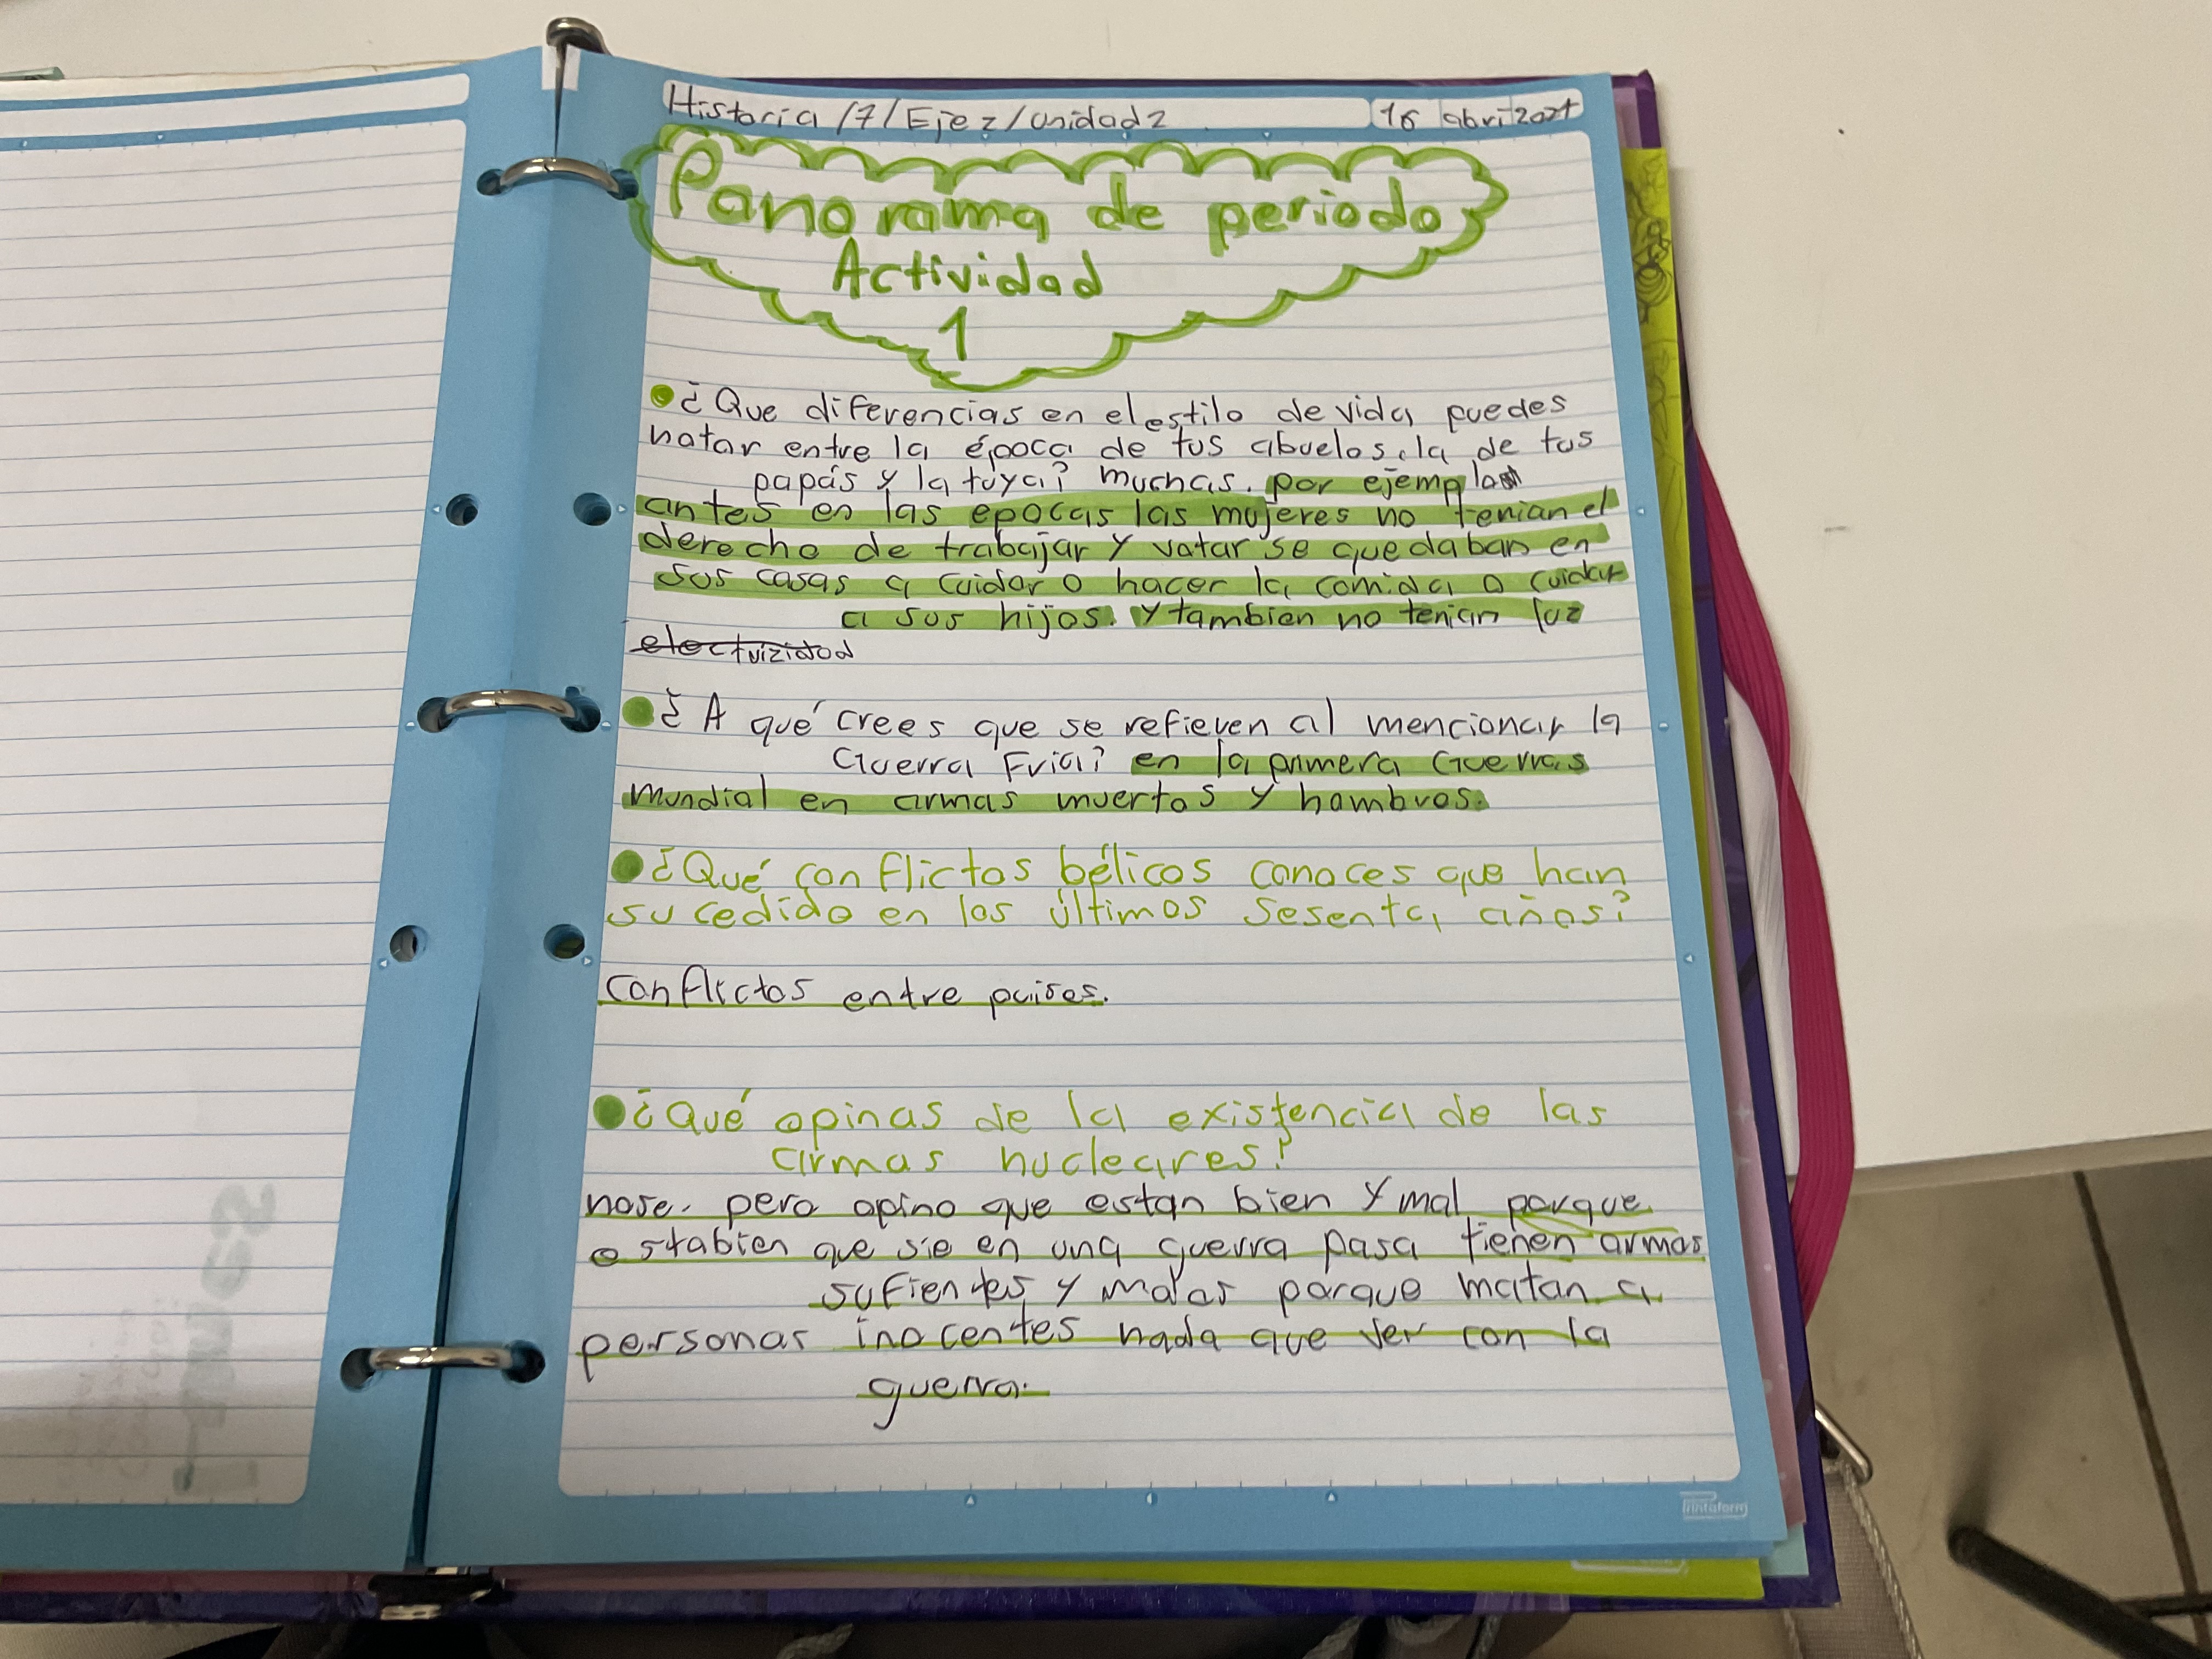 Historia /7/Eje 2/unidad 2 16 abril 2021
Panorama de periodo
Actividad
1
¿Que diferencias en el estilo de vida puedes
notar entre la época de tus abuelos, la de tus
papás y la tuya? muchas. por ejemplo
antes en las epocas las mujeres no tenian el
derecho de trabajar y votar se quedaban en
sus casas a cuidar o hacer la comida o cuidar
a sus hijos. Y tambien no tenian luz
electrizidad
¿A qué crees que se refieren al mencionar la
Guerra Fria? en la primera Guerras
Mundial en armas muertos y hambros.
¿Qué conflictos bélicos conoces que han
sucedido en los últimos sesenta años?
Conflictos entre paises.
¿Qué opinas de la existencia de las
armas nucleares?
nose. pero opino que estan bien y mal porque
estabien que sie en una guerra pasa tienen armas
sufientes y malas porque matan a
personas inocentes nada que ver con la
guerra.
Printaform